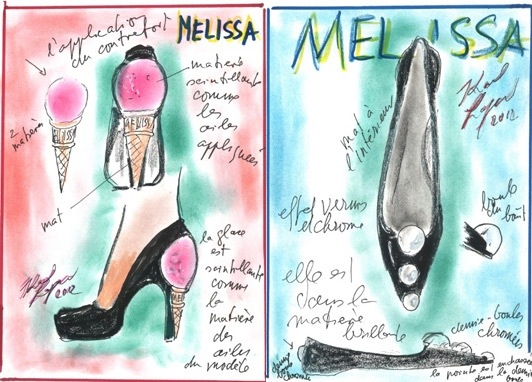 l'application
du contrefort
MELISSA
2
matières
matière
scintillante
comme
les
ailes
appliquées
MELISSA
mat
la glace
est
scintillante
comme
la
matière
des
ailes
du modèle
2012
MELISSA
2012
mat à
l'intérieur
effet vernis
et chrome
boule
du bout
elle est
dans la
matière
brillante
demie-boules
chromées
la pointe est
dans la